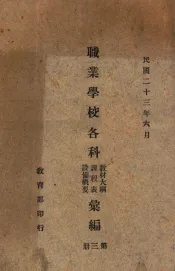 民國二十三年六月
職業學校各科
教材大綱
課程表
設備概要
彙編
第三冊
教育部印行